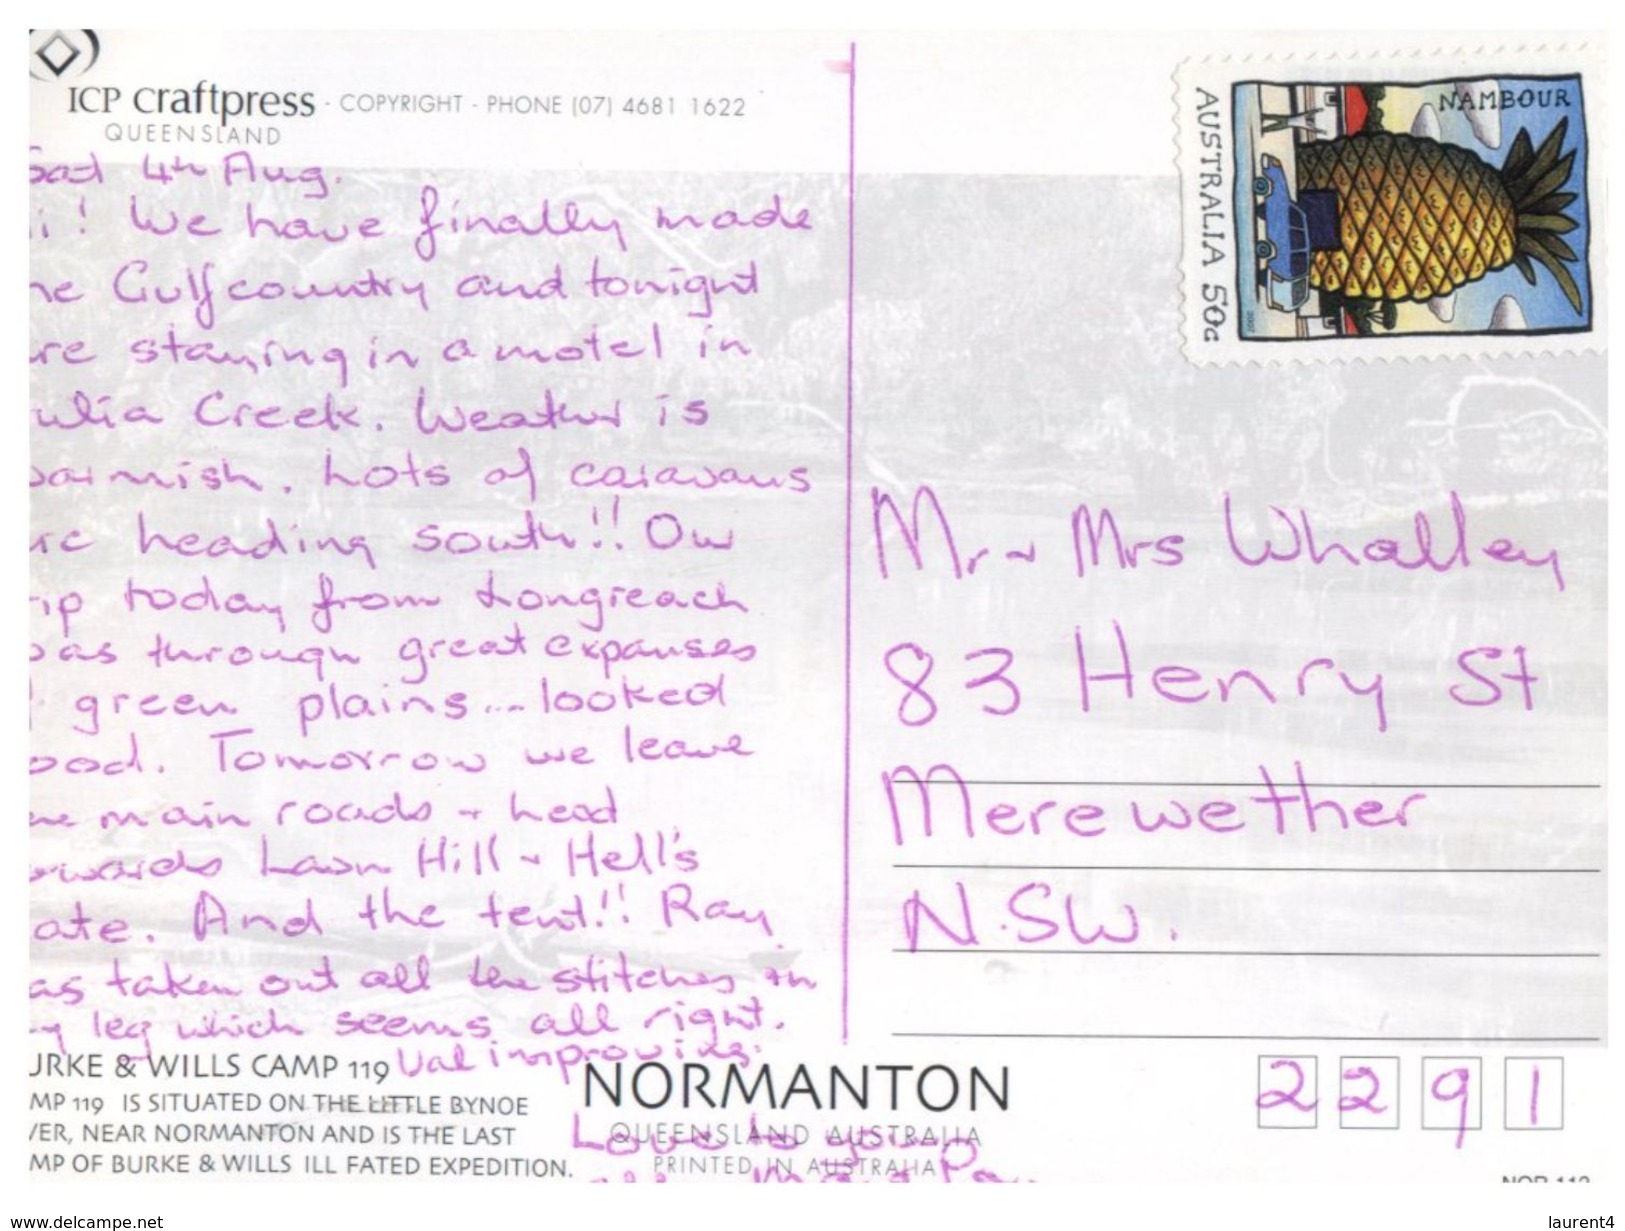 ICP craftpress - COPYRIGHT - PHONE (07) 4681 1622
QUEENSLAND
Sat 4th Aug.
i! We have finally made
he Gulf country and tonight
re staying in a motel in
ulia Creek. Weather is
armish. Lots of caravans
re heading south!! Our
ip today from Longreach
as through great expanses
green plains... looked
ood. Tomorrow we leave
he main roads + head
owards Lawn Hill + Hell's
ate. And the tent!! Ray
as taken out all the stitches in
y leg which seems all right.
Val improving.
Love to you
NAMBOUR
AUSTRALIA 50c
2007
Mr + Mrs Whalley
83 Henry St
Merewether
N.SW.
2291
URKE & WILLS CAMP 119
MP 119 IS SITUATED ON THE LITTLE BYNOE
VER, NEAR NORMANTON AND IS THE LAST
MP OF BURKE & WILLS ILL FATED EXPEDITION.
NORMANTON
QUEENSLAND AUSTRALIA
PRINTED IN AUSTRALIA
www.delcampe.net
laurent4